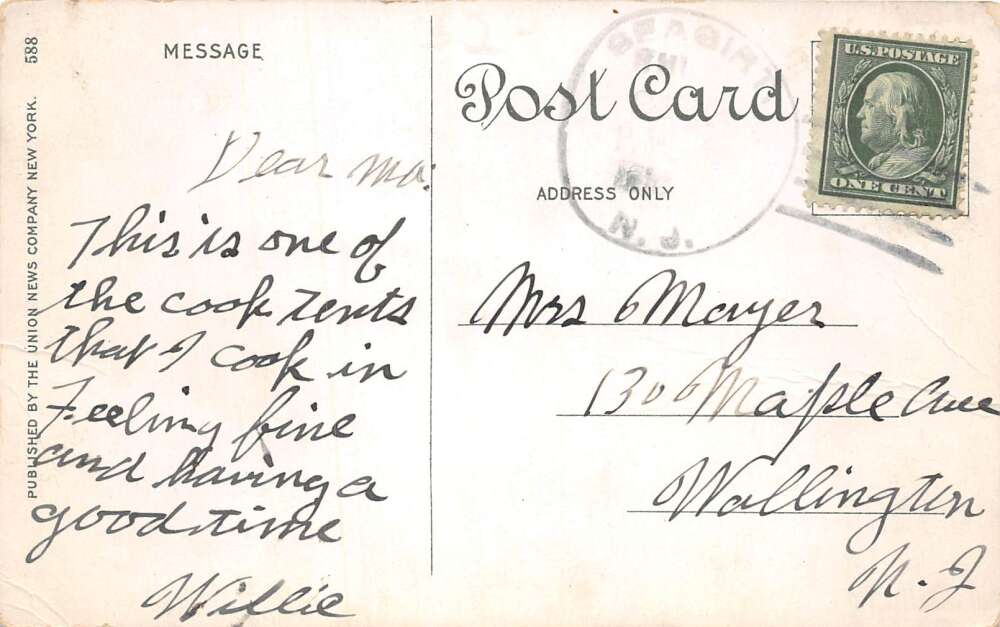 588
PUBLISHED BY THE UNION NEWS COMPANY NEW YORK.
MESSAGE
Dear Ma:
This is one of
the cook tents
that I cook in
Feeling fine
and having a
good time
Willie
Post Card
ADDRESS ONLY
SEAGIRT
N. J.
U.S. POSTAGE
ONE CENT
Mrs Mayer
1300 Maple Ave
Wallington
N. J